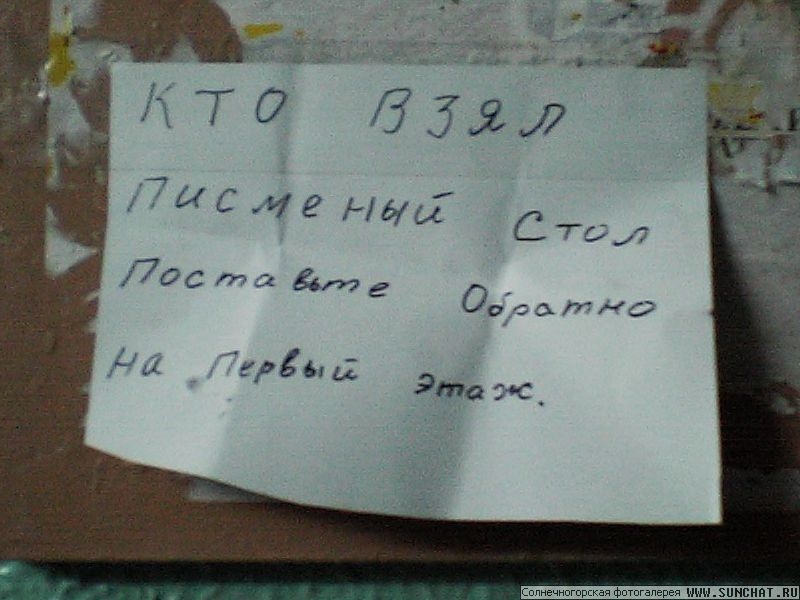 КТО ВЗЯЛ
Писменый Стол
Поставьте Обратно
на Первый этаж.
Солнечногорская фотогалерея WWW.SUNCHAT.RU